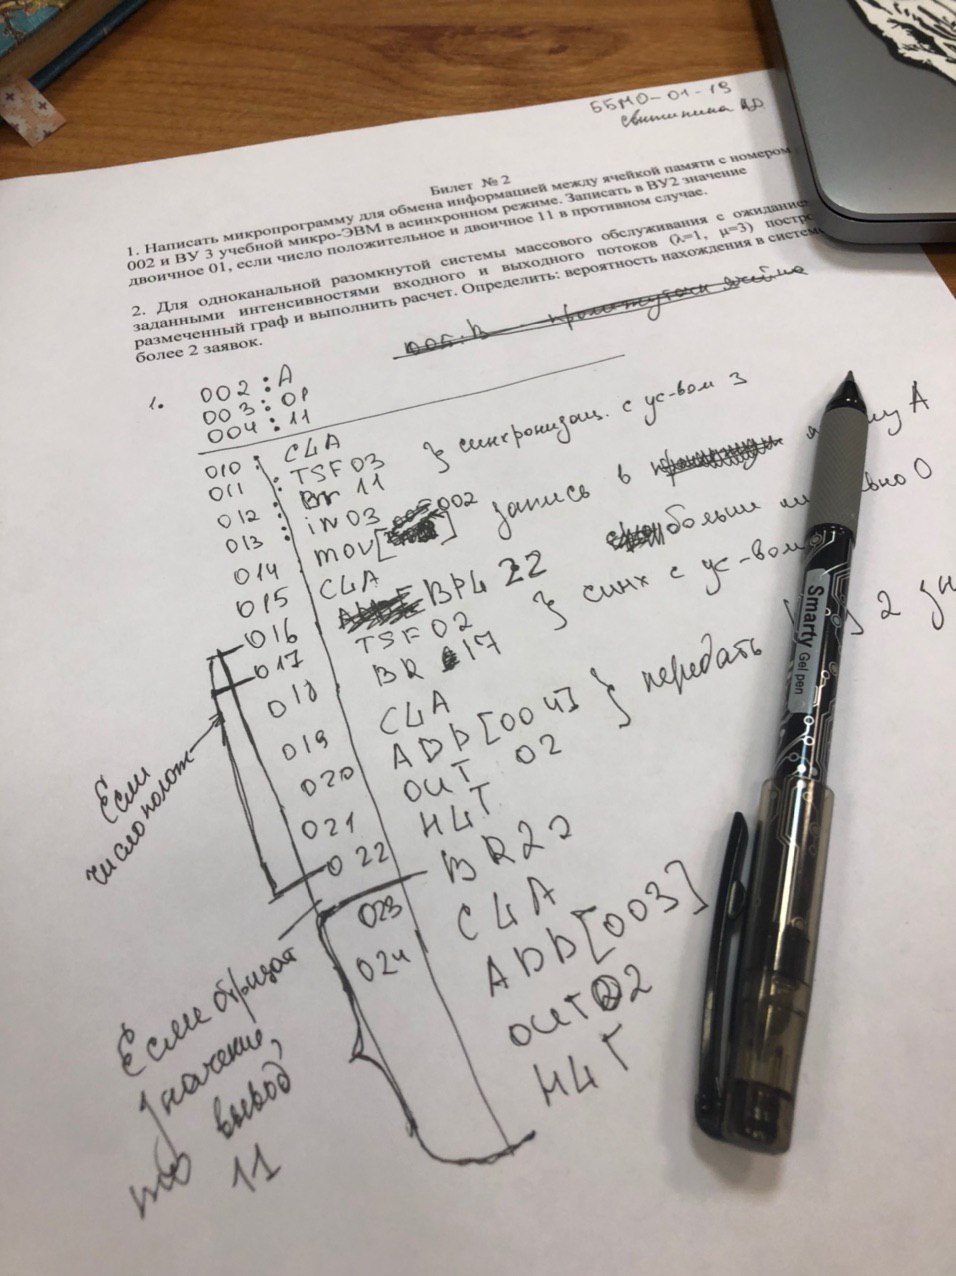 ББМО-01-19
Билет № 2
1. Написать микропрограмму для обмена информацией между ячейкой памяти с номером
002 и ВУ 3 учебной микро-ЭВМ в асинхронном режиме. Записать в ВУ2 значение
двоичное 01, если число положительное и двоичное 11 в противном случае.
2. Для одноканальной разомкнутой системы массового обслуживания с ожидание
заданными интенсивностями входного и выходного потоков (λ=1, μ=3) постро
размеченный граф и выполнить расчет. Определить: вероятность нахождения в систем
более 2 заявок.
1. 002 : A
003 : 01
004 : 11
010 : CLA
011 : TSF 03 } синхронизац. с ус-вом 3
012 : Br 11
013 : iN 03
014 MOV[002] запись в А
015 CLA
016 BPL 22 больше 0
017 TSF 02 } синх с ус-вом
018 BR 17
019 CLA
020 ADD [004] } передать 2
021 OUT 02
022 HLT
023 BR 22
024 CLA
ADD [003]
OUT 02
HLT
Если
число полож
Если отрицат
значение,
то вывод
11
Smarty Gel pen